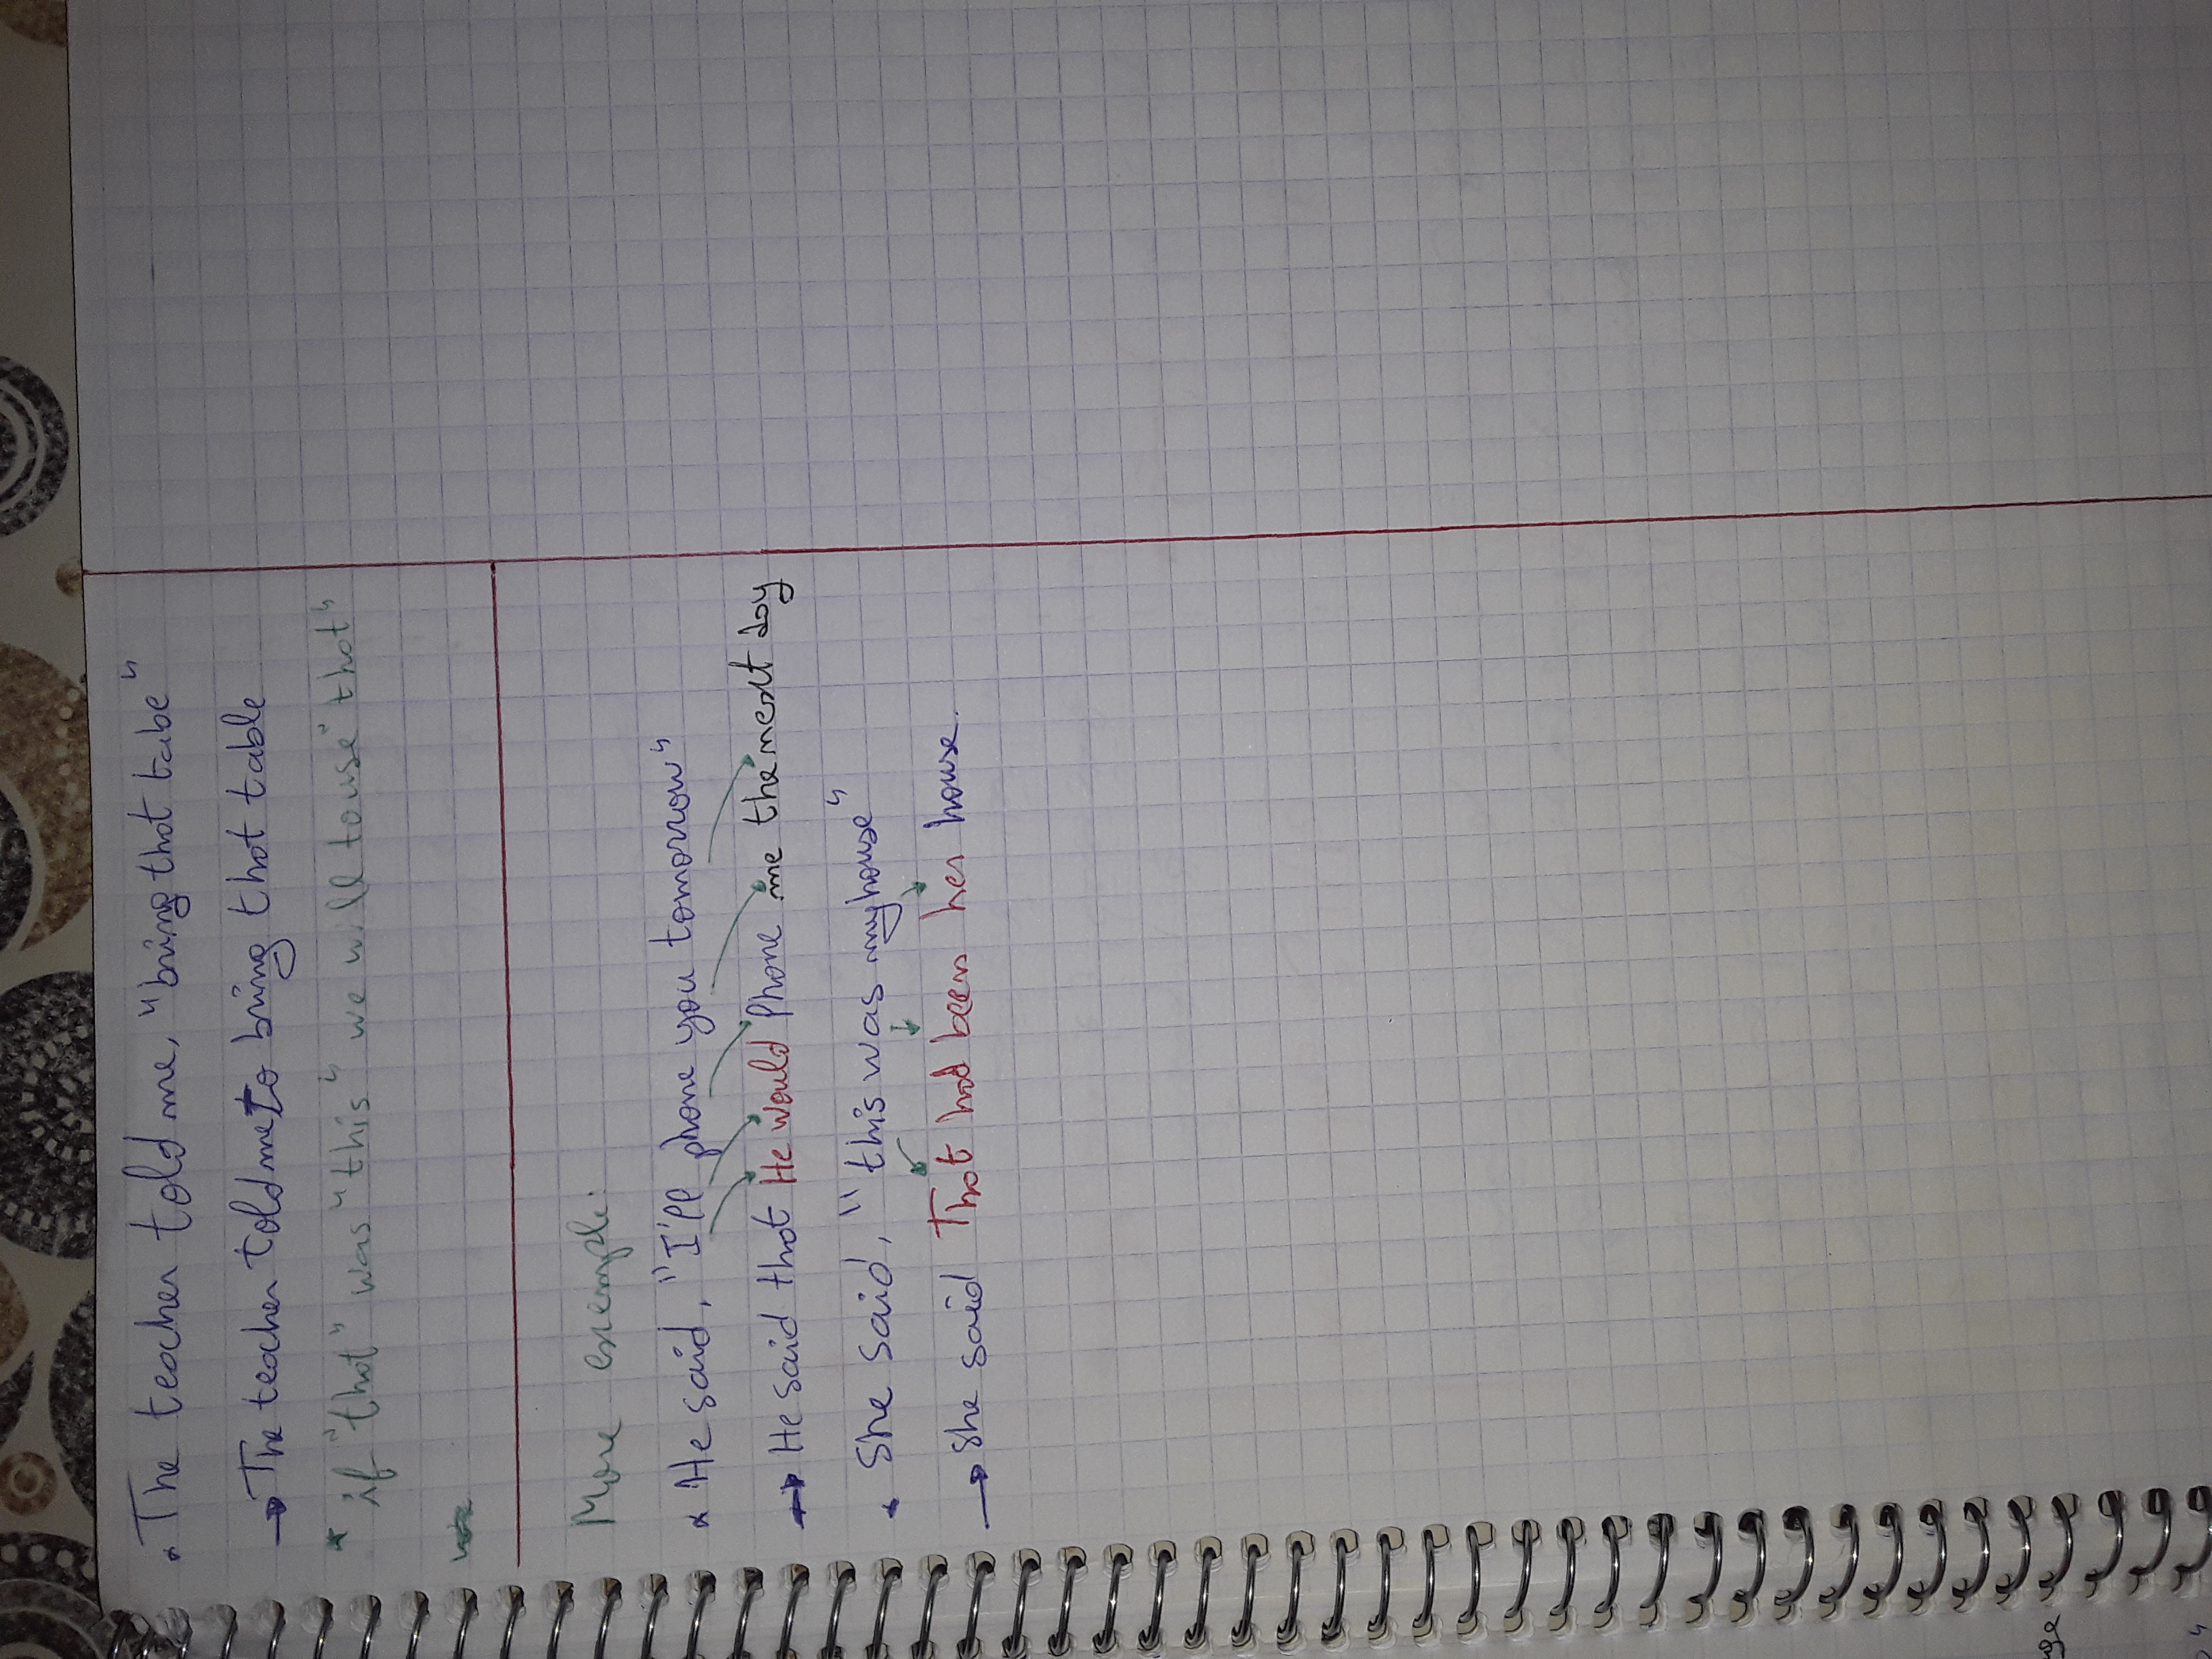 . The teacher told me, "bring that tabe"
→ The teacher told me to bring that table
* if "that" was "this" we will to use "that"
More exemple:
* He said, "I'll phone you tomorrow"
→ He said that He would Phone me the next day
. She said, "this was my house"
→ She said That had been her house.